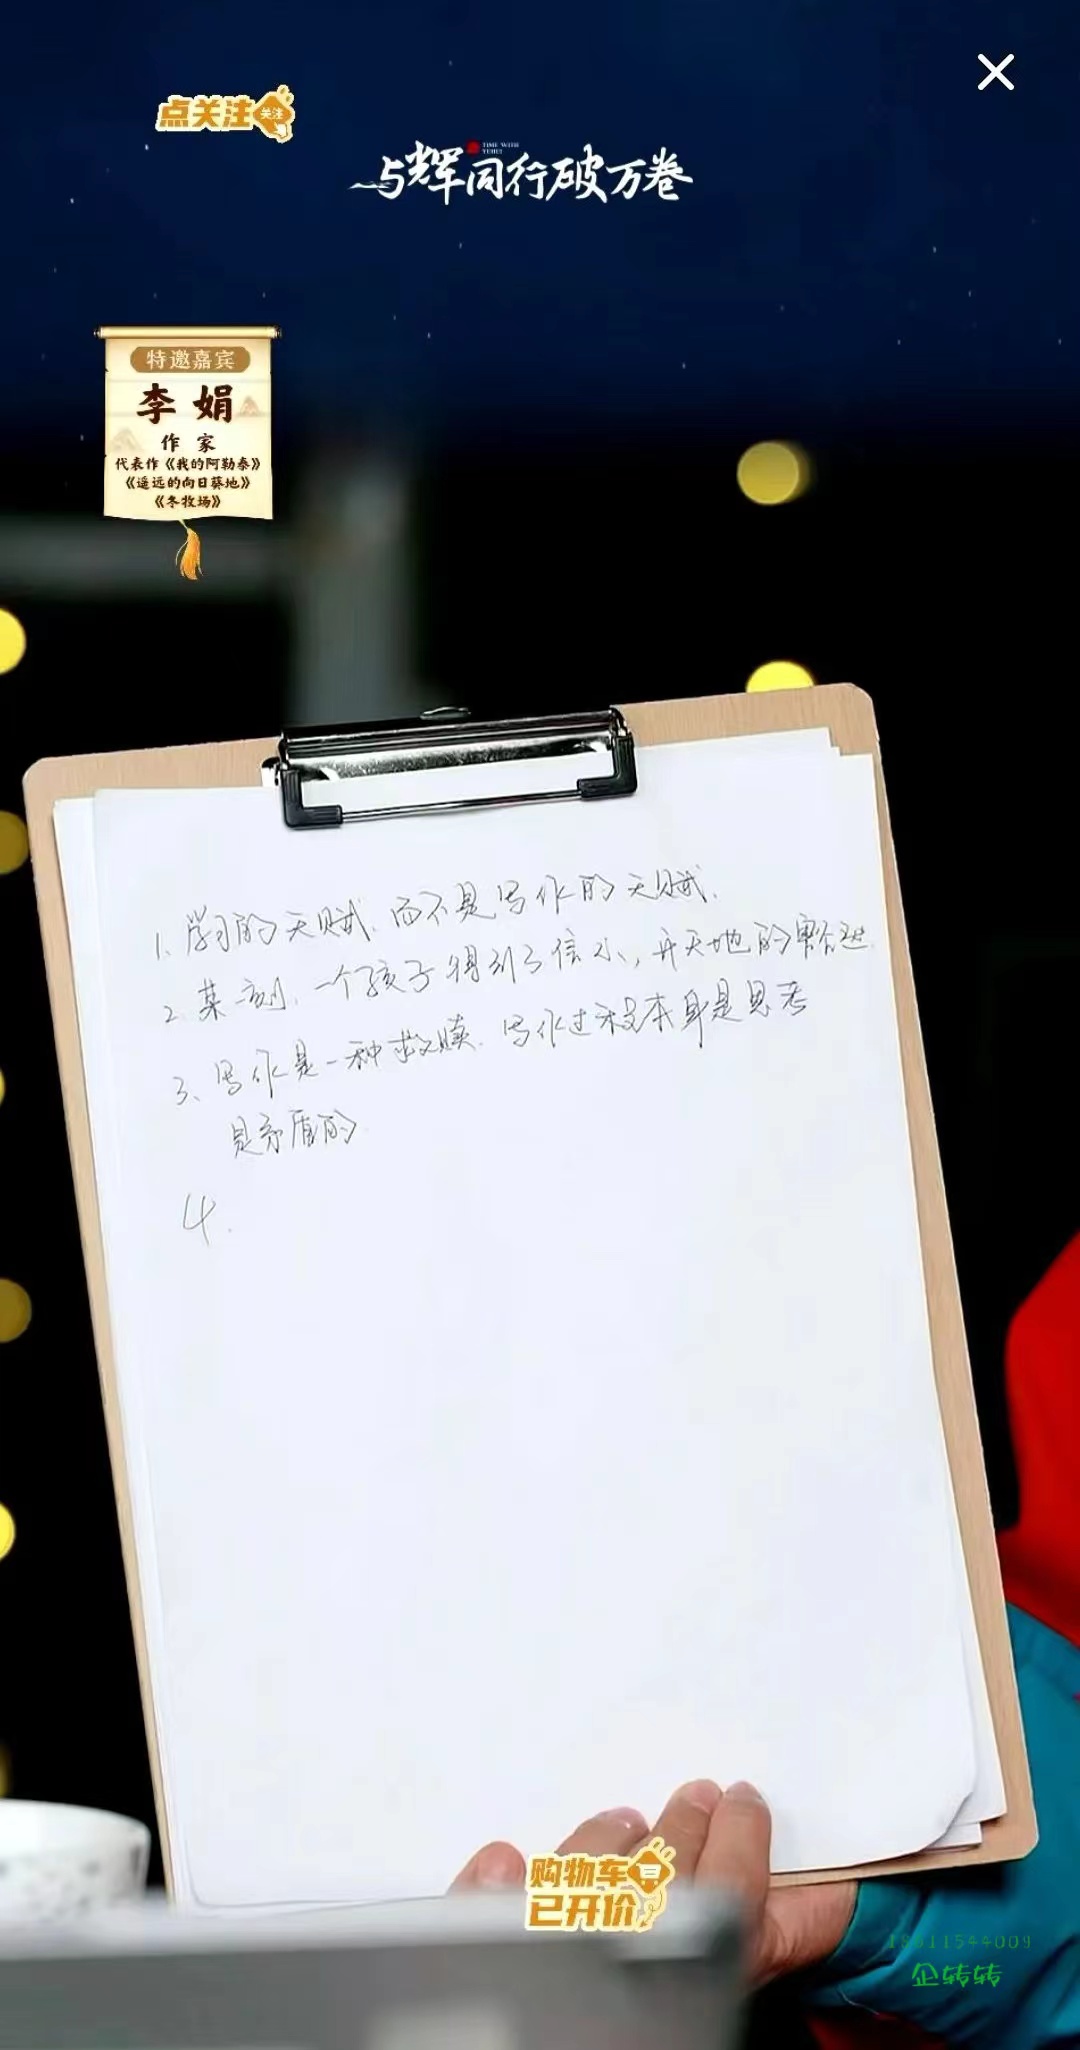 点关注
关注
与辉同行破万卷
TIME WITH
YUHUI
特邀嘉宾
李娟
作家
代表作《我的阿勒泰》
《遥远的向日葵地》
《冬牧场》
1. 学习的天赋、而不是写作的天赋.
2. 某一刻、一个孩子得到了信小,开天地的
3、写作是一种救赎. 写作过程本身是思考
是矛盾的
4.
购物车
已开价
18611544009
企转转